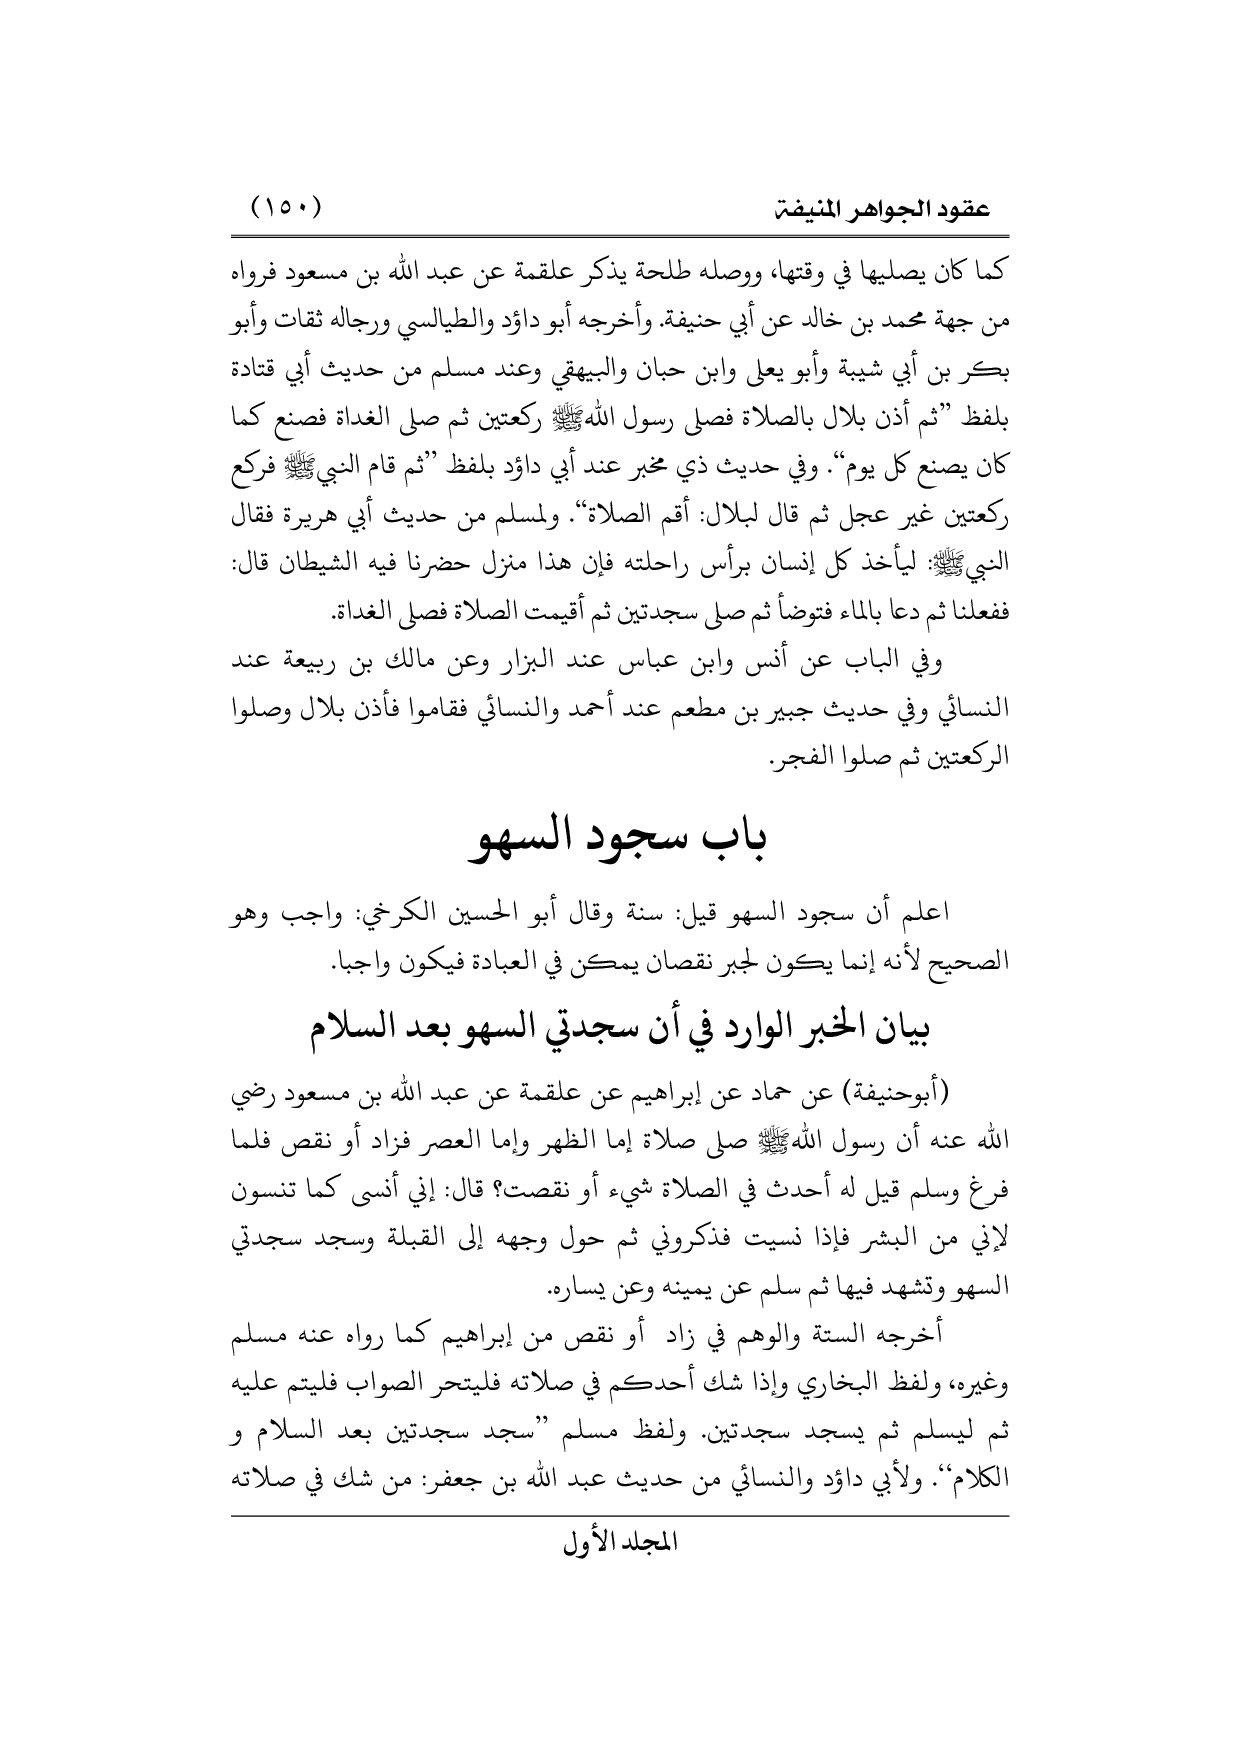 عقود الجواهر المنيفة (١٥٠)
كما كان يصليها في وقتها، ووصله طلحة يذكر علقمة عن عبد الله بن مسعود فرواه
من جهة محمد بن خالد عن أبي حنيفة. وأخرجه أبو داؤد والطيالسي ورجاله ثقات وأبو
بكر بن أبي شيبة وأبو يعلى وابن حبان والبيهقي وعند مسلم من حديث أبي قتادة
بلفظ ”ثم أذن بلال بالصلاة فصلى رسول اللهﷺ ركعتين ثم صلى الغداة فصنع كما
كان يصنع كل يوم“. وفي حديث ذي مخبر عند أبي داؤد بلفظ ”ثم قام النبيﷺ فركع
ركعتين غير عجل ثم قال لبلال: أقم الصلاة“. ولمسلم من حديث أبي هريرة فقال
النبيﷺ: ليأخذ كل إنسان برأس راحلته فإن هذا منزل حضرنا فيه الشيطان قال:
ففعلنا ثم دعا بالماء فتوضأ ثم صلى سجدتين ثم أقيمت الصلاة فصلى الغداة.
وفي الباب عن أنس وابن عباس عند البزار وعن مالك بن ربيعة عند
النسائي وفي حديث جبير بن مطعم عند أحمد والنسائي فقاموا فأذن بلال وصلوا
الركعتين ثم صلوا الفجر.
باب سجود السهو
اعلم أن سجود السهو قيل: سنة وقال أبو الحسين الكرخي: واجب وهو
الصحيح لأنه إنما يكون لجبر نقصان يمكن في العبادة فيكون واجبا.
بيان الخبر الوارد في أن سجدتي السهو بعد السلام
(أبوحنيفة) عن حماد عن إبراهيم عن علقمة عن عبد الله بن مسعود رضي
الله عنه أن رسول اللهﷺ صلى صلاة إما الظهر وإما العصر فزاد أو نقص فلما
فرغ وسلم قيل له أحدث في الصلاة شيء أو نقصت؟ قال: إني أنسى كما تنسون
لإني من البشر فإذا نسيت فذكروني ثم حول وجهه إلى القبلة وسجد سجدتي
السهو وتشهد فيها ثم سلم عن يمينه وعن يساره.
أخرجه الستة والوهم في زاد أو نقص من إبراهيم كما رواه عنه مسلم
وغيره، ولفظ البخاري وإذا شك أحدكم في صلاته فليتحر الصواب فليتم عليه
ثم ليسلم ثم يسجد سجدتين. ولفظ مسلم ”سجد سجدتين بعد السلام و
الكلام“. ولأبي داؤد والنسائي من حديث عبد الله بن جعفر: من شك في صلاته
المجلد الأول